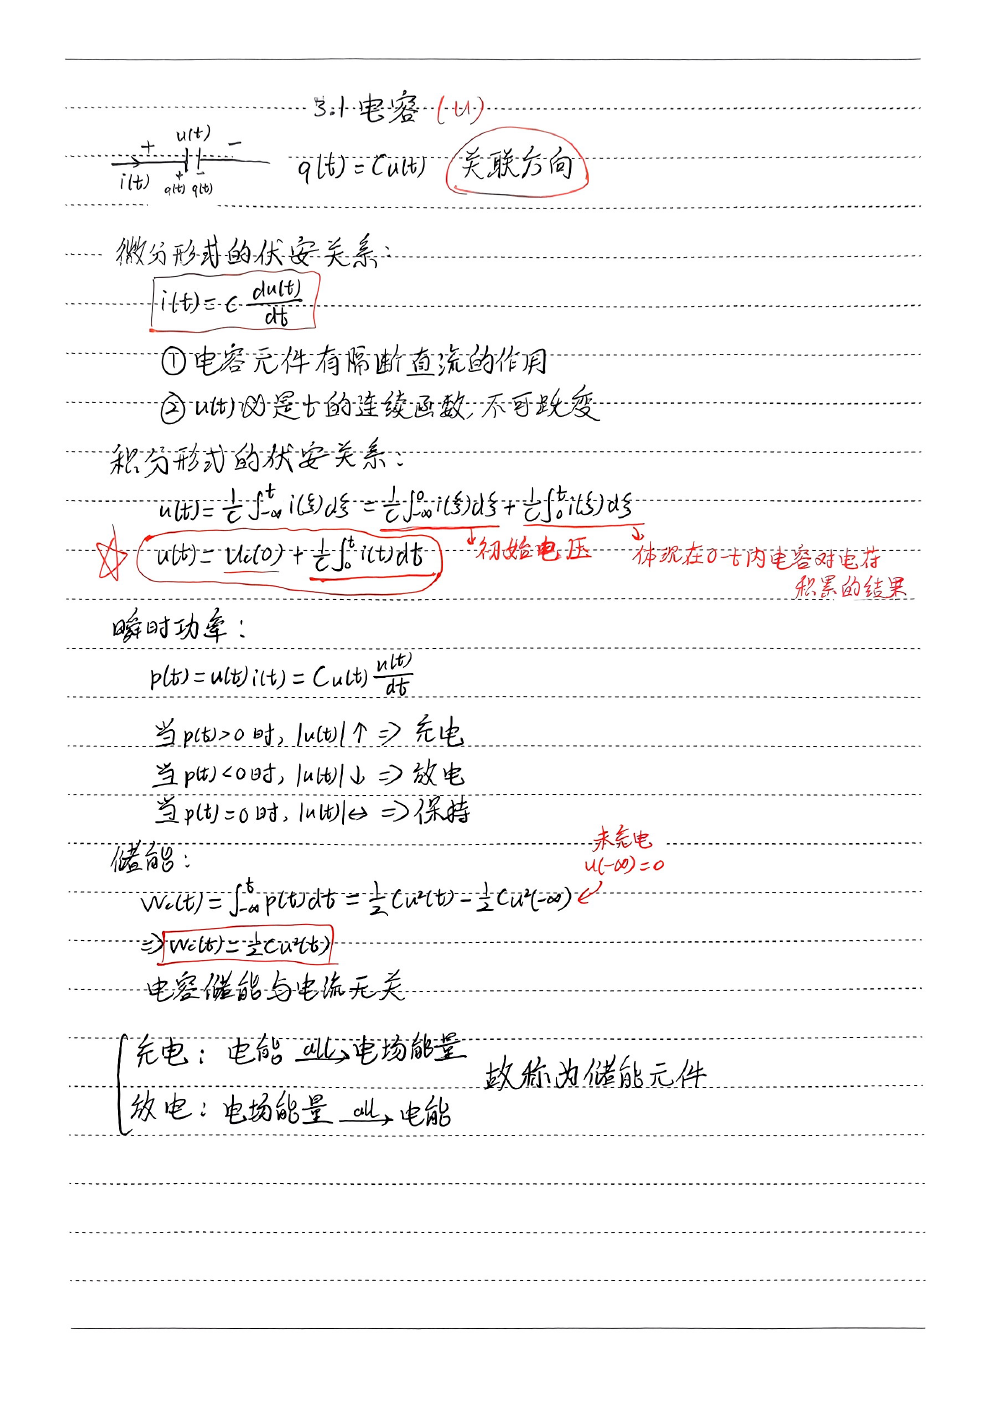 3.1 电容 (u)
u(t)
+ -
i(t) + -
q(t) q(t)
q(t) = Cu(t) 关联方向
微分形式的伏安关系：
i(t) = C du(t)/dt
① 电容元件有隔断直流的作用
② u(t) 是t的连续函数，不可跃变
积分形式的伏安关系：
u(t) = 1/C ∫_{-∞}^{t} i(ξ)dξ = 1/C ∫_{-∞}^{0} i(ξ)dξ + 1/C ∫_{0}^{t} i(ξ)dξ
☆ u(t) = Uc(0) + 1/C ∫_{0}^{t} i(t)dt
↓初始电压
↓体现在0-t内电容对电荷
积累的结果
瞬时功率：
p(t) = u(t)i(t) = Cu(t) u(t)/dt
当p(t)>0时，|u(t)|↑ => 充电
当p(t)<0时，|u(t)|↓ => 放电
当p(t)=0时，|u(t)|↔ => 保持
储能：
未充电
u(-∞)=0
Wc(t) = ∫_{-∞}^{t} p(t)dt = 1/2 Cu²(t) - 1/2 Cu²(-∞)
=> Wc(t) = 1/2 Cu²(t)
电容储能与电流无关
充电：电能 all→ 电场能量
故称为储能元件
放电：电场能量 all→ 电能